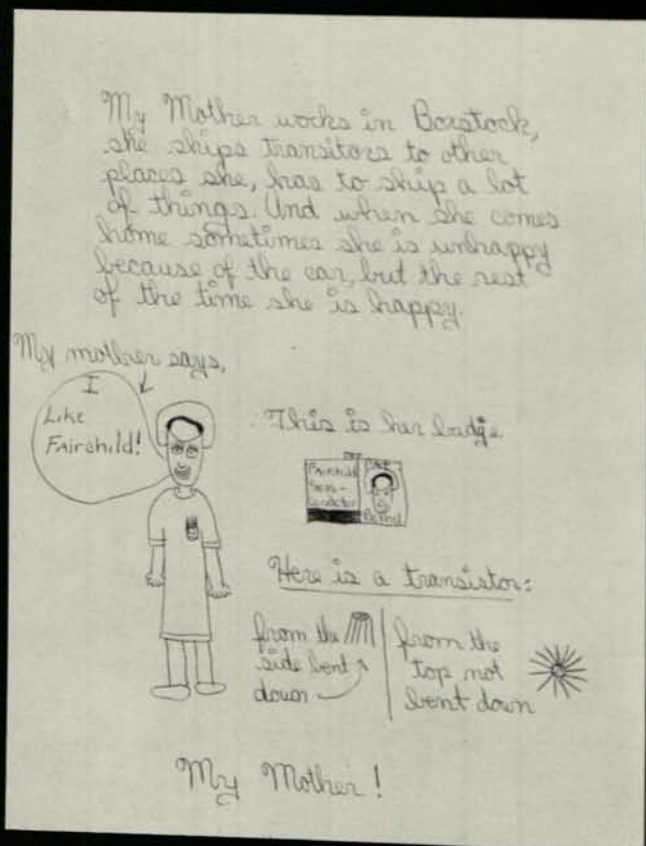 My Mother works in Boxstock,
she ships transitors to other
places she, has to ship a lot
of things. And when she comes
home sometimes she is unhappy
because of the car, but the rest
of the time she is happy.
My mother says,
I
Like
FAirchild!
This is her badge
FAirchild
Semi-
Conductor
Here is a transistor:
from the
side bent
down
from the
top not
bent down
My Mother!